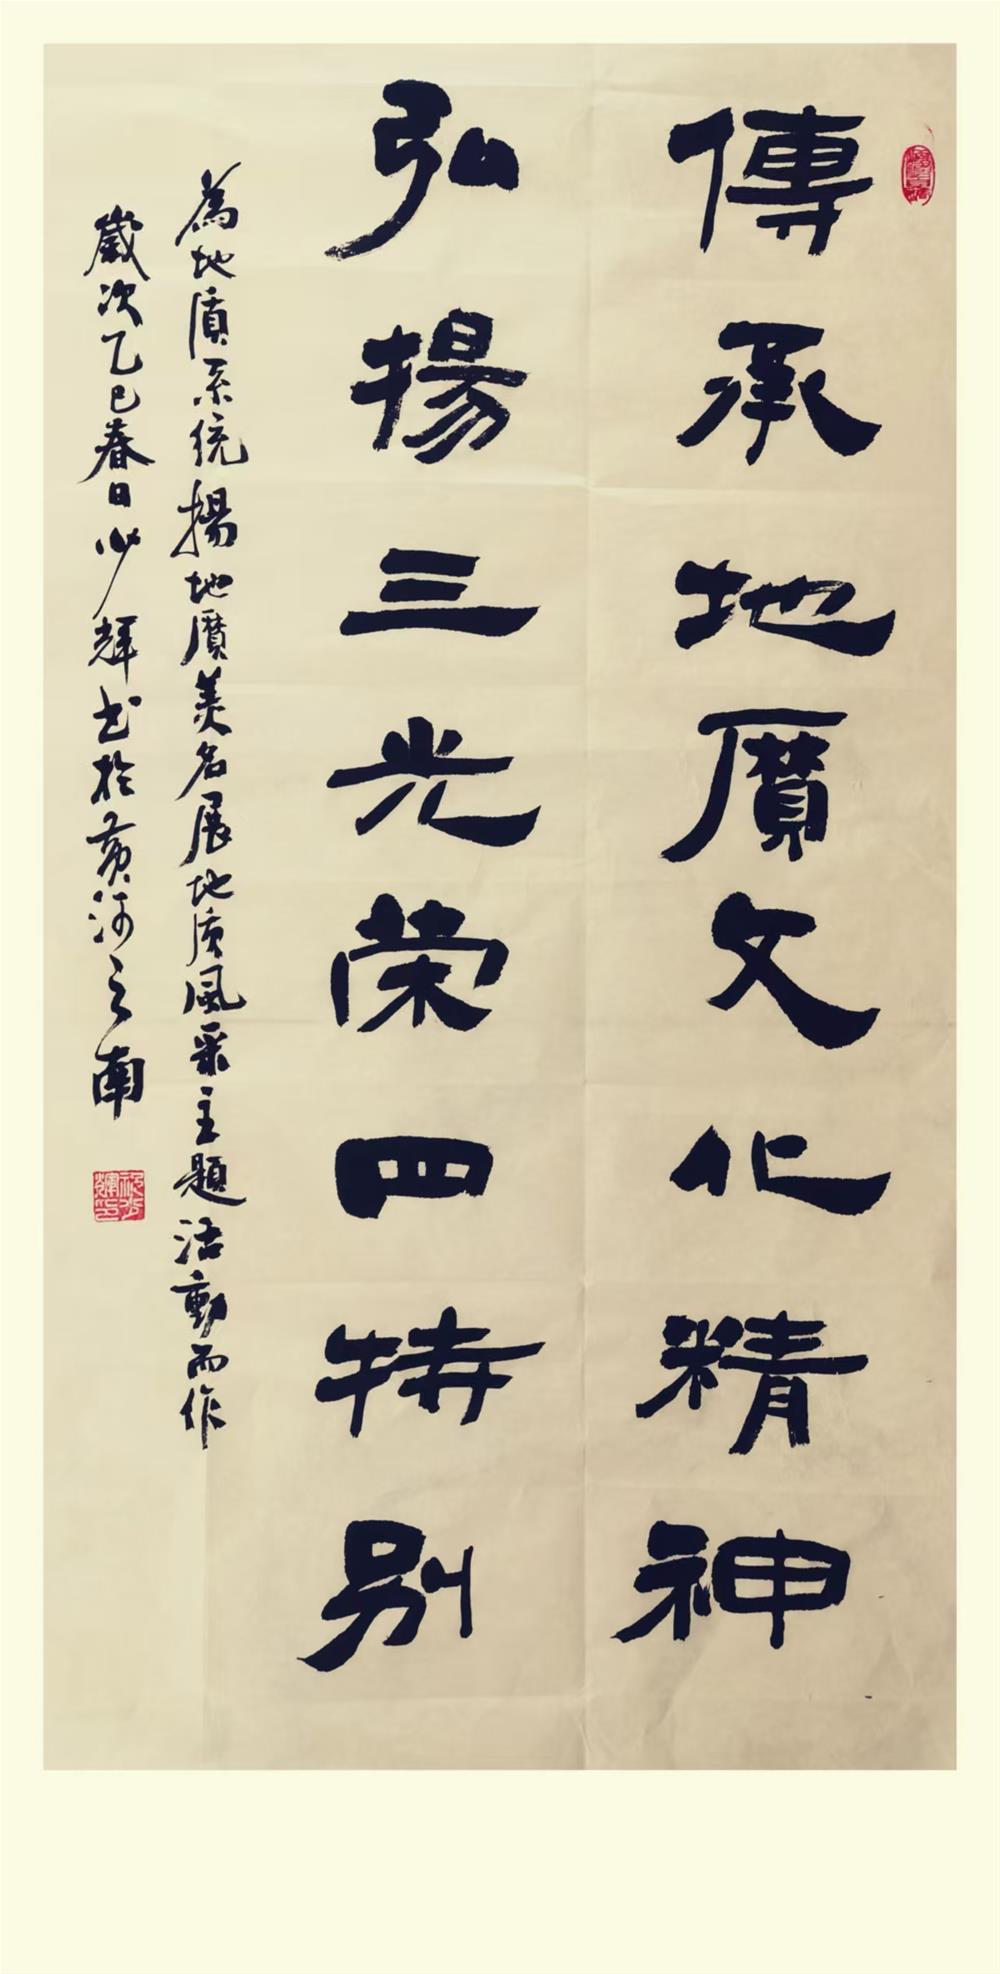 傳承地質文化精神
弘揚三光荣四特别
為地质系统揚地質美名展地质風采主題活動而作
歲次乙巳春日少輝书於黄河之南